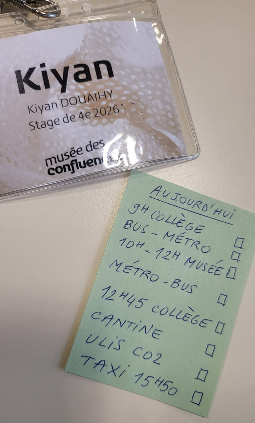 Kiyan
Kiyan DOUAIHY
Stage de 4e 2026
musée des
confluences
AUJOURD'HUI
9H COLLÈGE
BUS - MÉTRO
10H - 12H MUSÉE
MÉTRO - BUS
12H45 COLLÈGE
CANTINE
ULIS CO2
TAXI 15H50